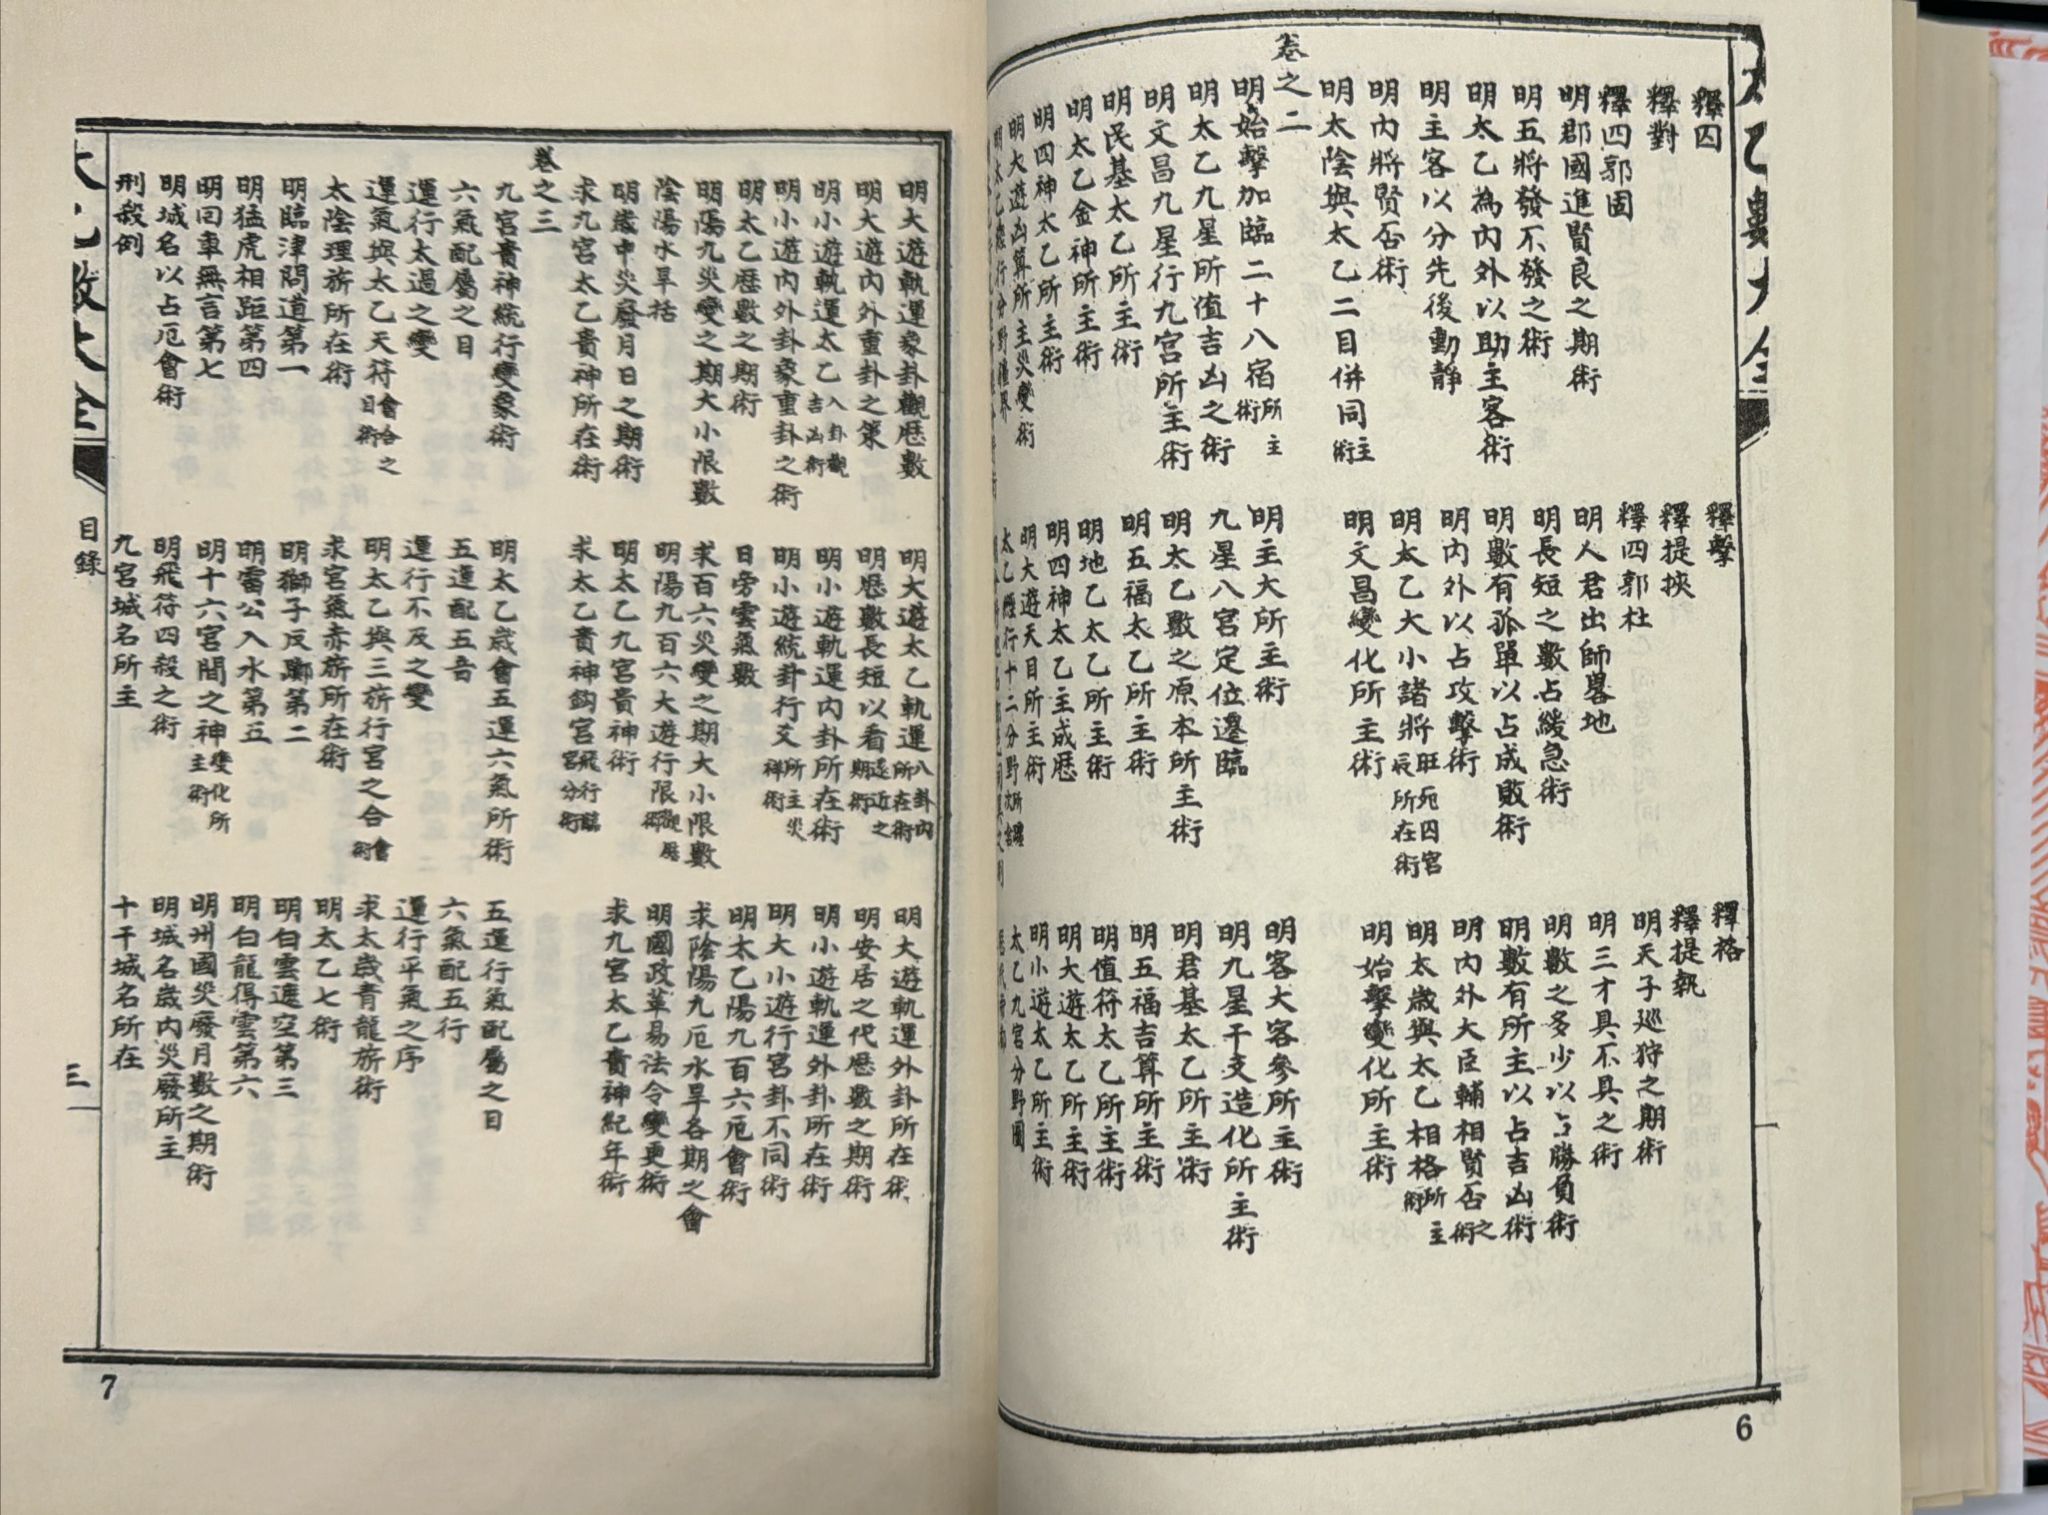 太乙數大全
釋囚
釋擊
釋格
釋對
釋提挾
釋提執
釋四郭固
釋四郭杜
明天子巡狩之期術
明郡國進賢良之期術
明人君出師畧地
明三才具不具之術
明五將發不發之術
明長短之數占緩急術
明數之多少以占勝負術
明太乙為內外以助主客術
明數有孤單以占成敗術
明數有所主以占吉凶術
明主客以分先後動靜
明內外以占攻擊術
明內外大臣輔相賢否之術
明內將賢否術
明太乙大小諸將旺死囚宮辰所在術
明太歲與太乙相格所主術
明太陰與太乙二目併同主術
明文昌變化所主術
明始擊變化所主術
卷之二
明始擊加臨二十八宿所主術
明主大所主術
明客大客參所主術
明太乙九星所值吉凶之術
九星八宮定位遷臨
明九星干支造化所主術
明文昌九星行九宮所主術
明太乙數之原本所主術
明君基太乙所主術
明民基太乙所主術
明五福太乙所主術
明五福吉算所主術
明太乙金神所主術
明地乙太乙所主術
明值符太乙所主術
明四神太乙所主術
明四神太乙主成歷
明大遊太乙所主術
明大遊凶算所主災變術
明大遊天目所主術
明小遊太乙所主術
明太乙經行分野疆界
太乙經行十二分野所躔次舍
太乙九宮分野圖
一
6
明大遊軌運象卦觀歷數
明大遊太乙軌運八卦內所在術
明大遊軌運外卦所在術
明大遊內外重卦之策
明歷數長短以看遠近之期術
明安居之代歷數之期術
明小遊軌運太乙入卦觀吉凶術
明小遊軌運內卦所在術
明小遊軌運外卦所在術
明小遊內外卦象重卦之術
明小遊統卦行爻所主災祥術
明大小遊行宮卦不同術
明太乙歷數之期術
日旁雲氣數
明太乙陽九百六厄會術
明陽九災變之期大小限數
求百六災變之期大小限數
求陰陽九厄水旱各期之會
陰陽水旱括
明陽九百六大遊行限觀歷術
明國政革易法令變更術
明歲中災廢月日之期術
明太乙九宮貴神術
求九宮太乙貴神紀年術
求九宮太乙貴神所在術
求太乙貴神鈎宮飛行臨宮分術
卷之三
九宮貴神統行變象術
明太乙歲會五運六氣所術
五運行氣配屬之日
六氣配屬之日
五運配五音
六氣配五行
運行太過之變
運行不及之變
運行平氣之序
運氣與太乙天符會合之日術
明太乙與三旂行宮之合會術
求太歲青龍旂術
太陰理旂所在術
求宮氣赤旂所在術
明太乙七術
明臨津問道第一
明獅子反躑第二
明白雲遮空第三
明猛虎相距第四
明雷公入水第五
明白龍得雲第六
明回車無言第七
明十六宮間之神變化所主術
明州國災廢月數之期術
明城名以占厄會術
明飛符四殺之術
明城名歲內災廢所主
刑殺例
九宮城名所主
十干城名所在
太乙數大全
目錄
三
7